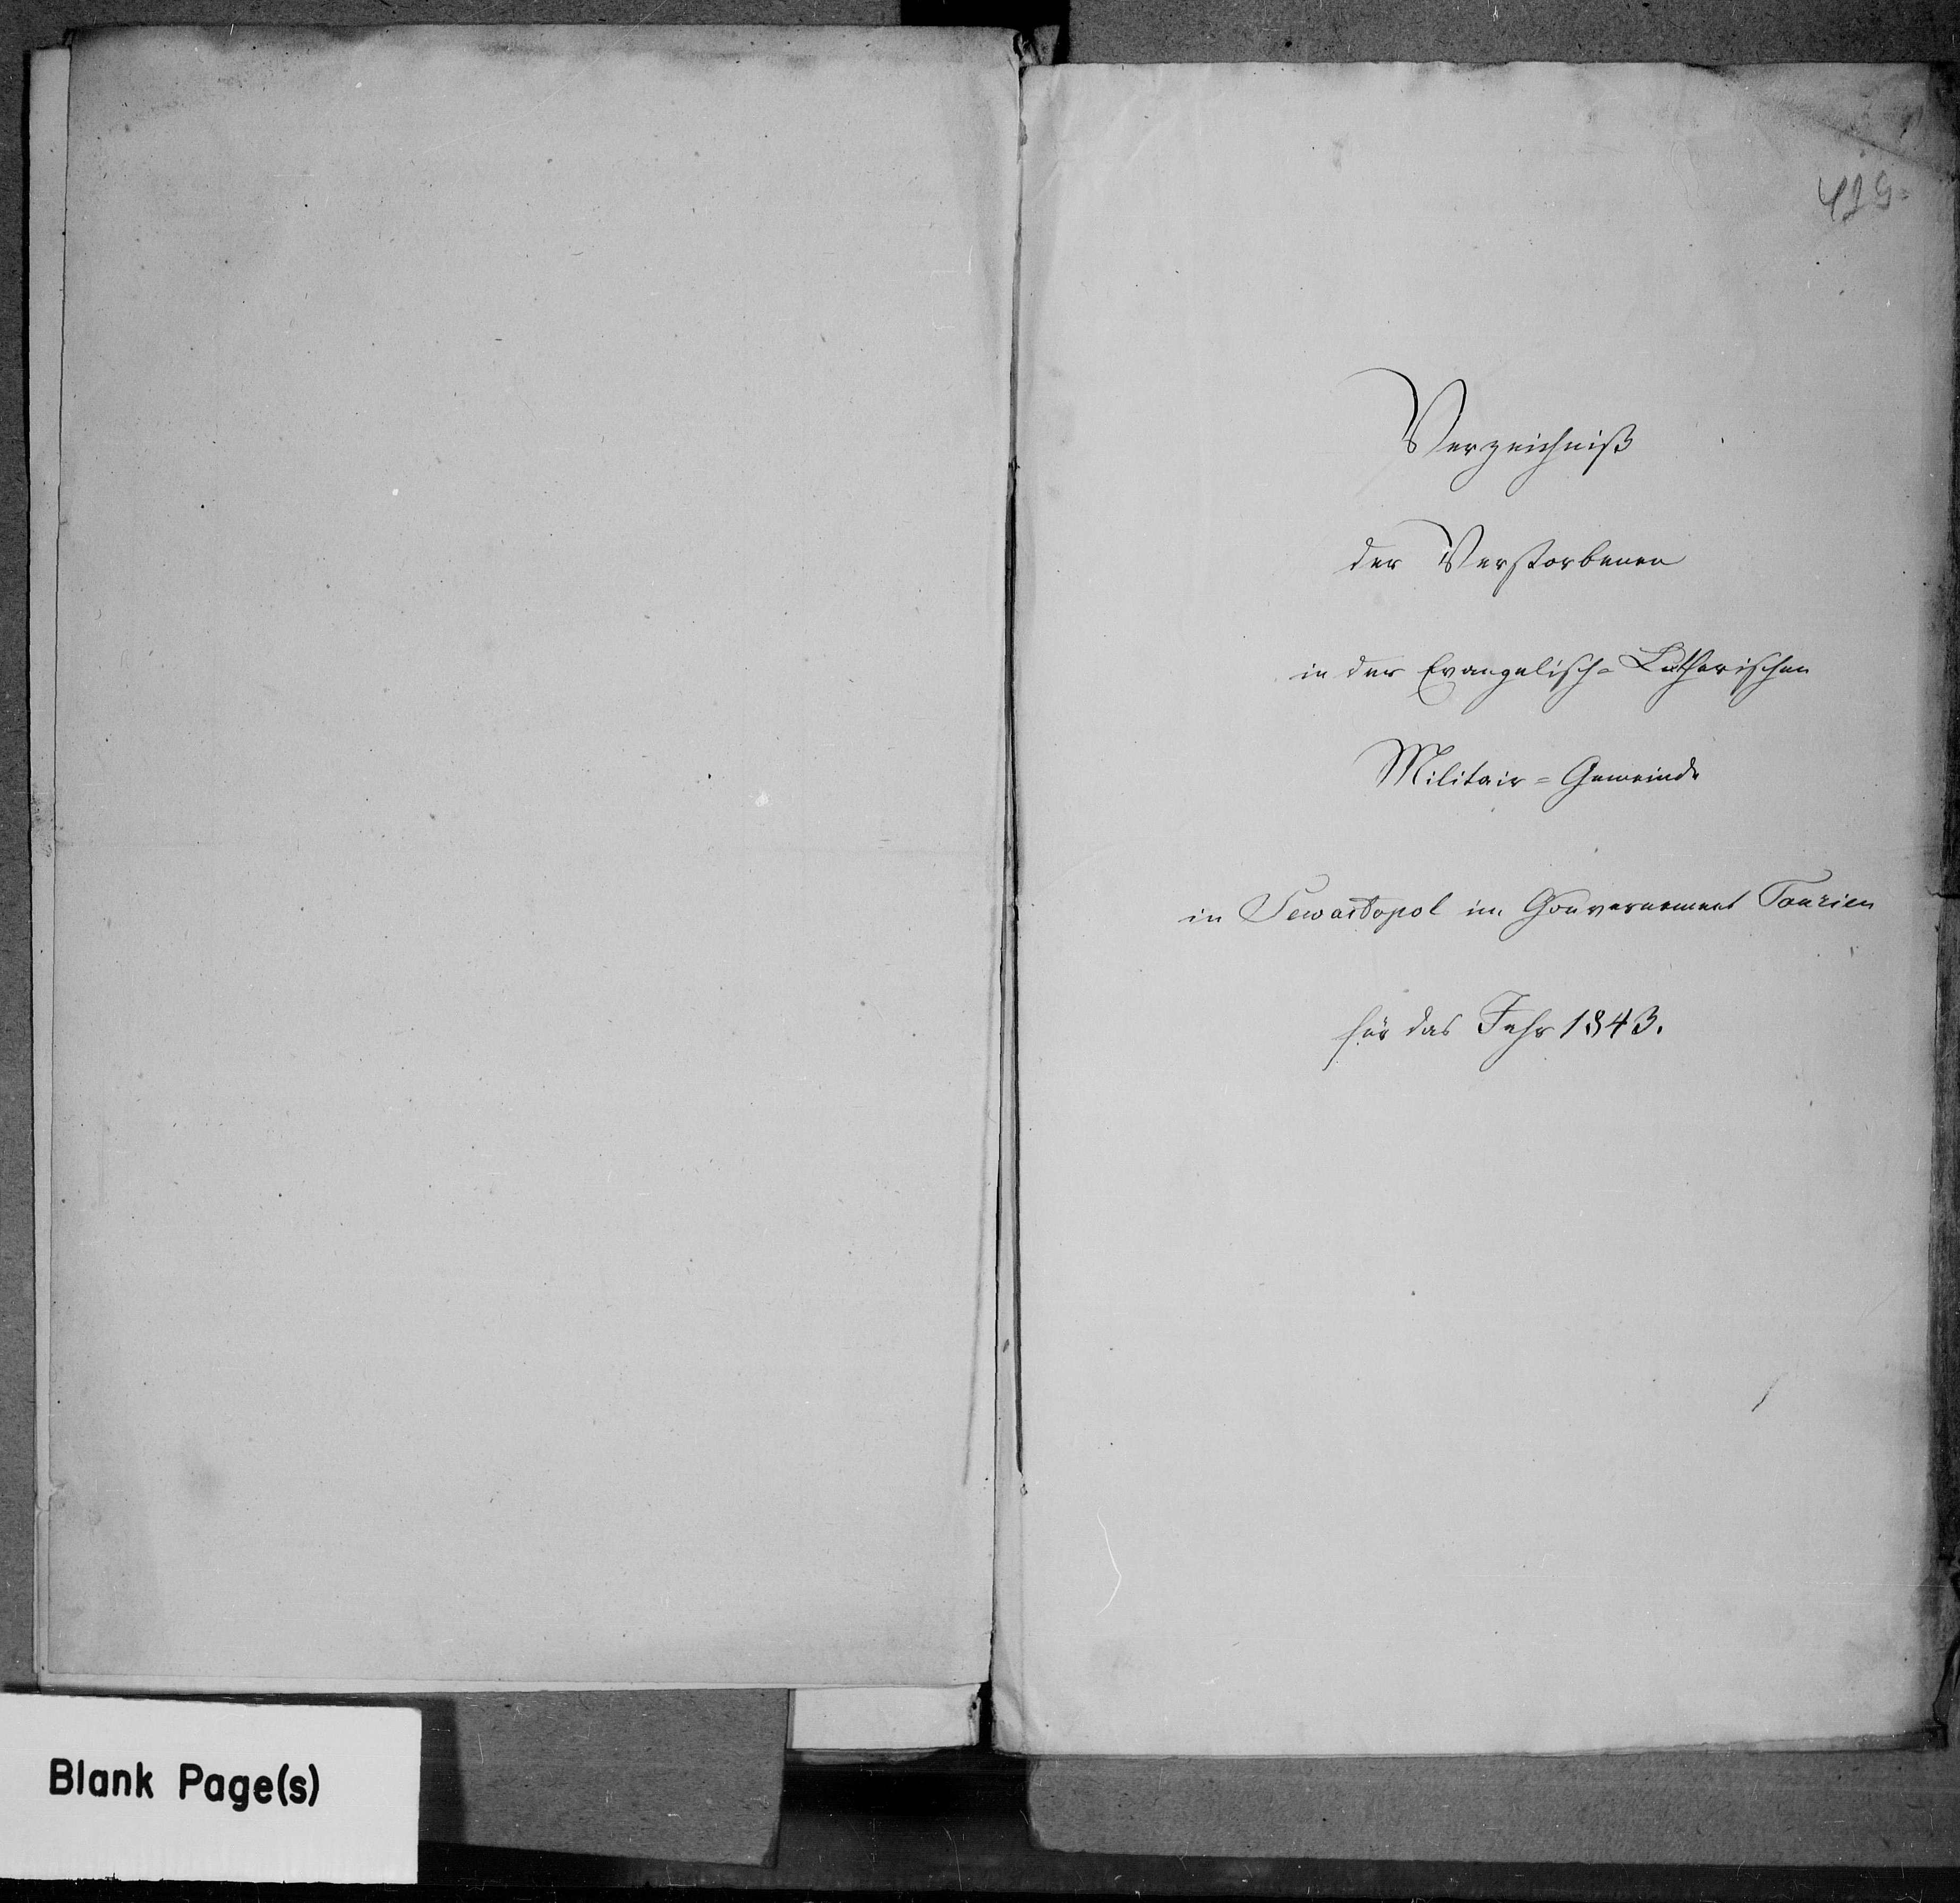 Verzeichniß
der Verstorbenen
in der Evangelisch=Lutherischen
Militair=Gemeinde
in Sewastopol im Gouvernement Taurien
für das Jahr 1843.
Blank Page(s)